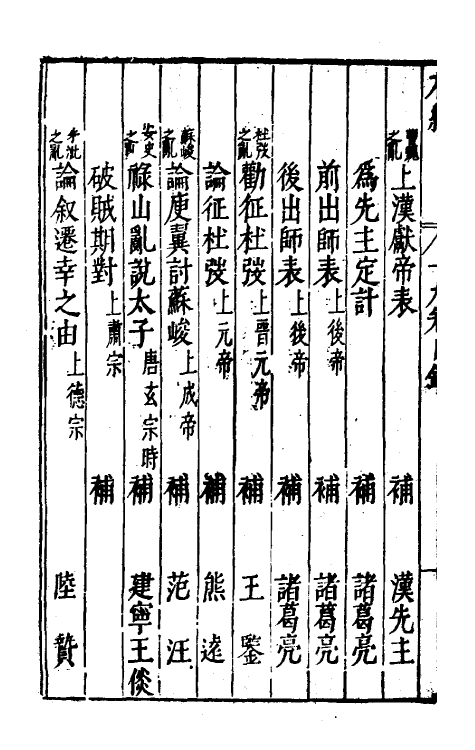 之亂 上漢獻帝表 補 漢先主
為先主定計 補 諸葛亮
前出師表 上後帝 補 諸葛亮
後出師表 上後帝 補 諸葛亮
杜弢之亂 勸征杜弢 上晋元帝 補 王鑒
論征杜弢 上元帝 補 熊遠
蘇峻之亂 論庾翼討蘇峻 上成帝 補 范汪
安史之 祿山亂說太子 唐玄宗時 補 建寧王倓
破賊期對 上肅宗 補
之亂 論叙遷幸之由 上德宗 陸贄